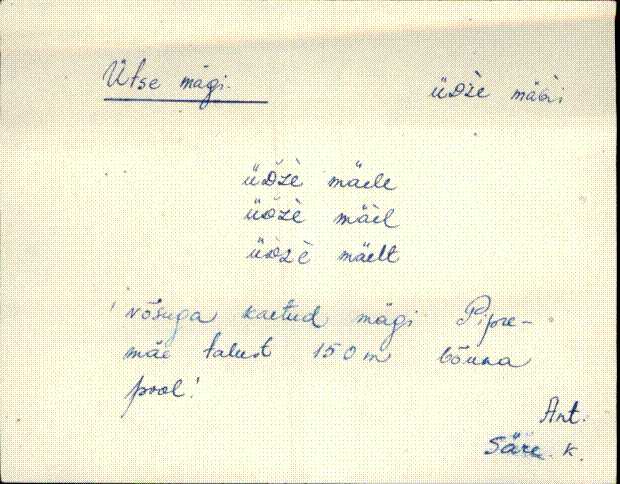 Ütse mägi. üᴅ̀źè mäɢi
üᴅ̀źè mäele
üᴅ̀źè mäèl
üᴅ̀źè mäelt
'võsuga kaetud mägi Pipre-
mäe talust 150 m lõuna
pool'
Ant.
Säre. k.